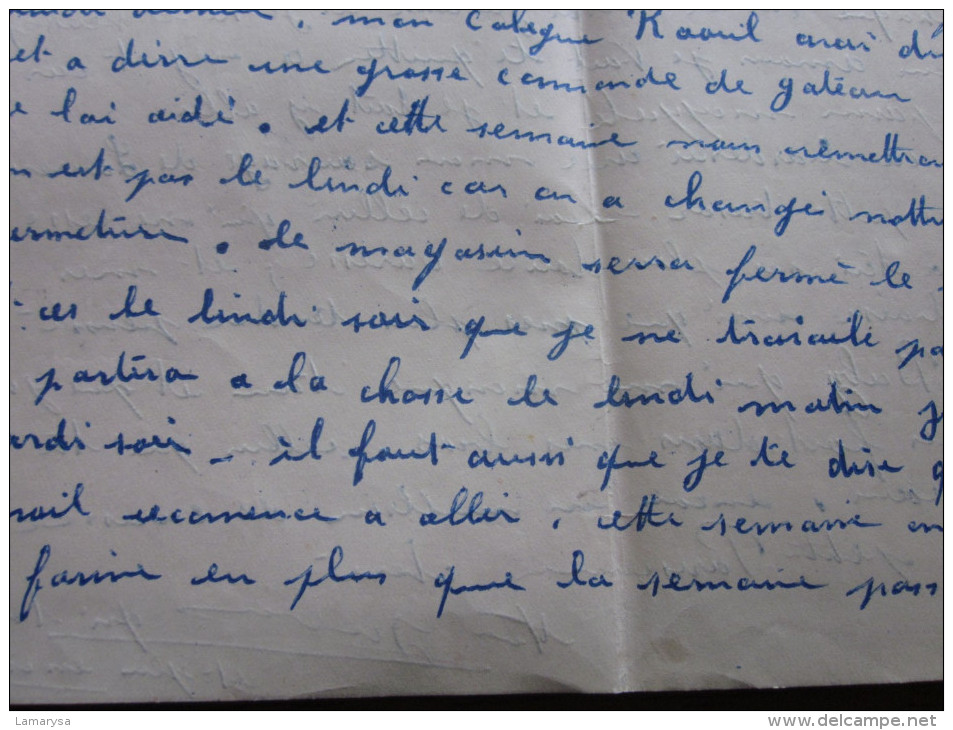 mon Colegue Raoul avai du
et a dirre une grosse commande de gateau
lai aidé. et cette semaine nous
est pas le lindi car on a changé nottr
ermeture. Le magasin serra fermé le
ces le lindi soir que je ne travaile pa
partira a la chasse le lindi matin j
ardi soir - il faut aussi que je te dise q
vail recomence a aller, cette semaine on
farine en plus que la semaine pass
Lamarysa
www.delcampe.net